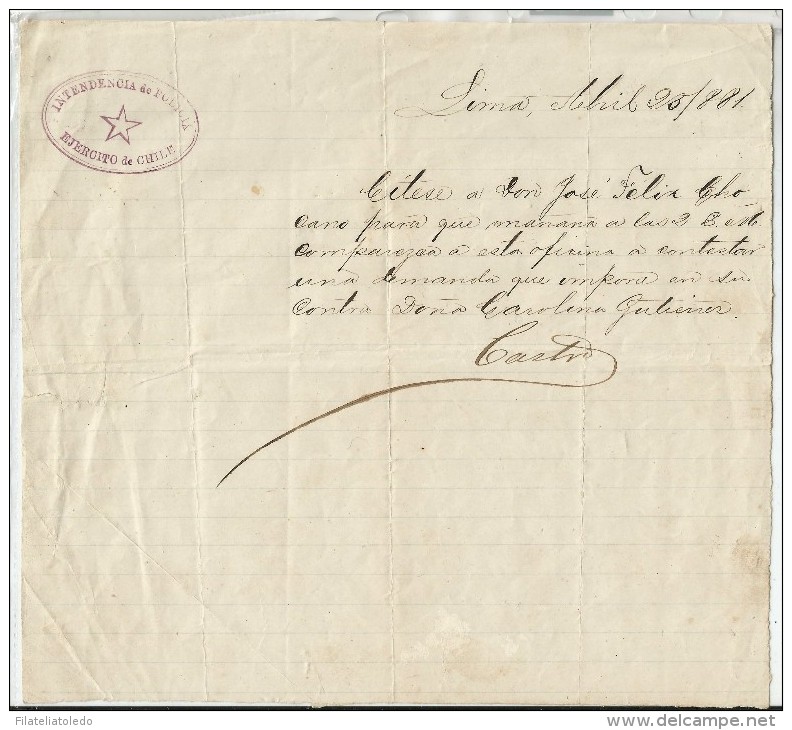 INTENDENCIA de POLICIA
EJERCITO de CHILE
Lima, Abril 25/881.
Cítese a Don José Félix Cho-
cano para que mañana a las 2
comparezca a esta oficina a contestar
una demanda que impone en su
contra Doña Carolina Gutierrez.
Castro
Filateliatoledo
©delcampe.net